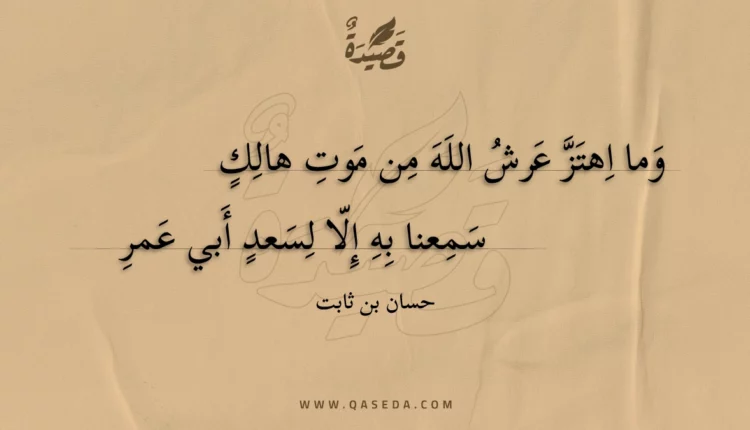 قَصِيْدَةٌ
وَما اِهتَزَّ عَرشُ اللَهَ مِن مَوتِ هالِكٍ
سَمِعنا بِهِ إِلّا لِسَعدٍ أَبي عَمرِ
حسان بن ثابت
WWW.QASEDA.COM